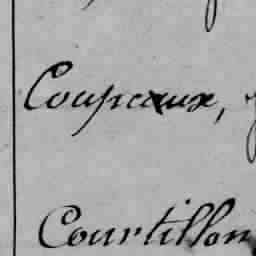 Coupeaux,
Courtillon